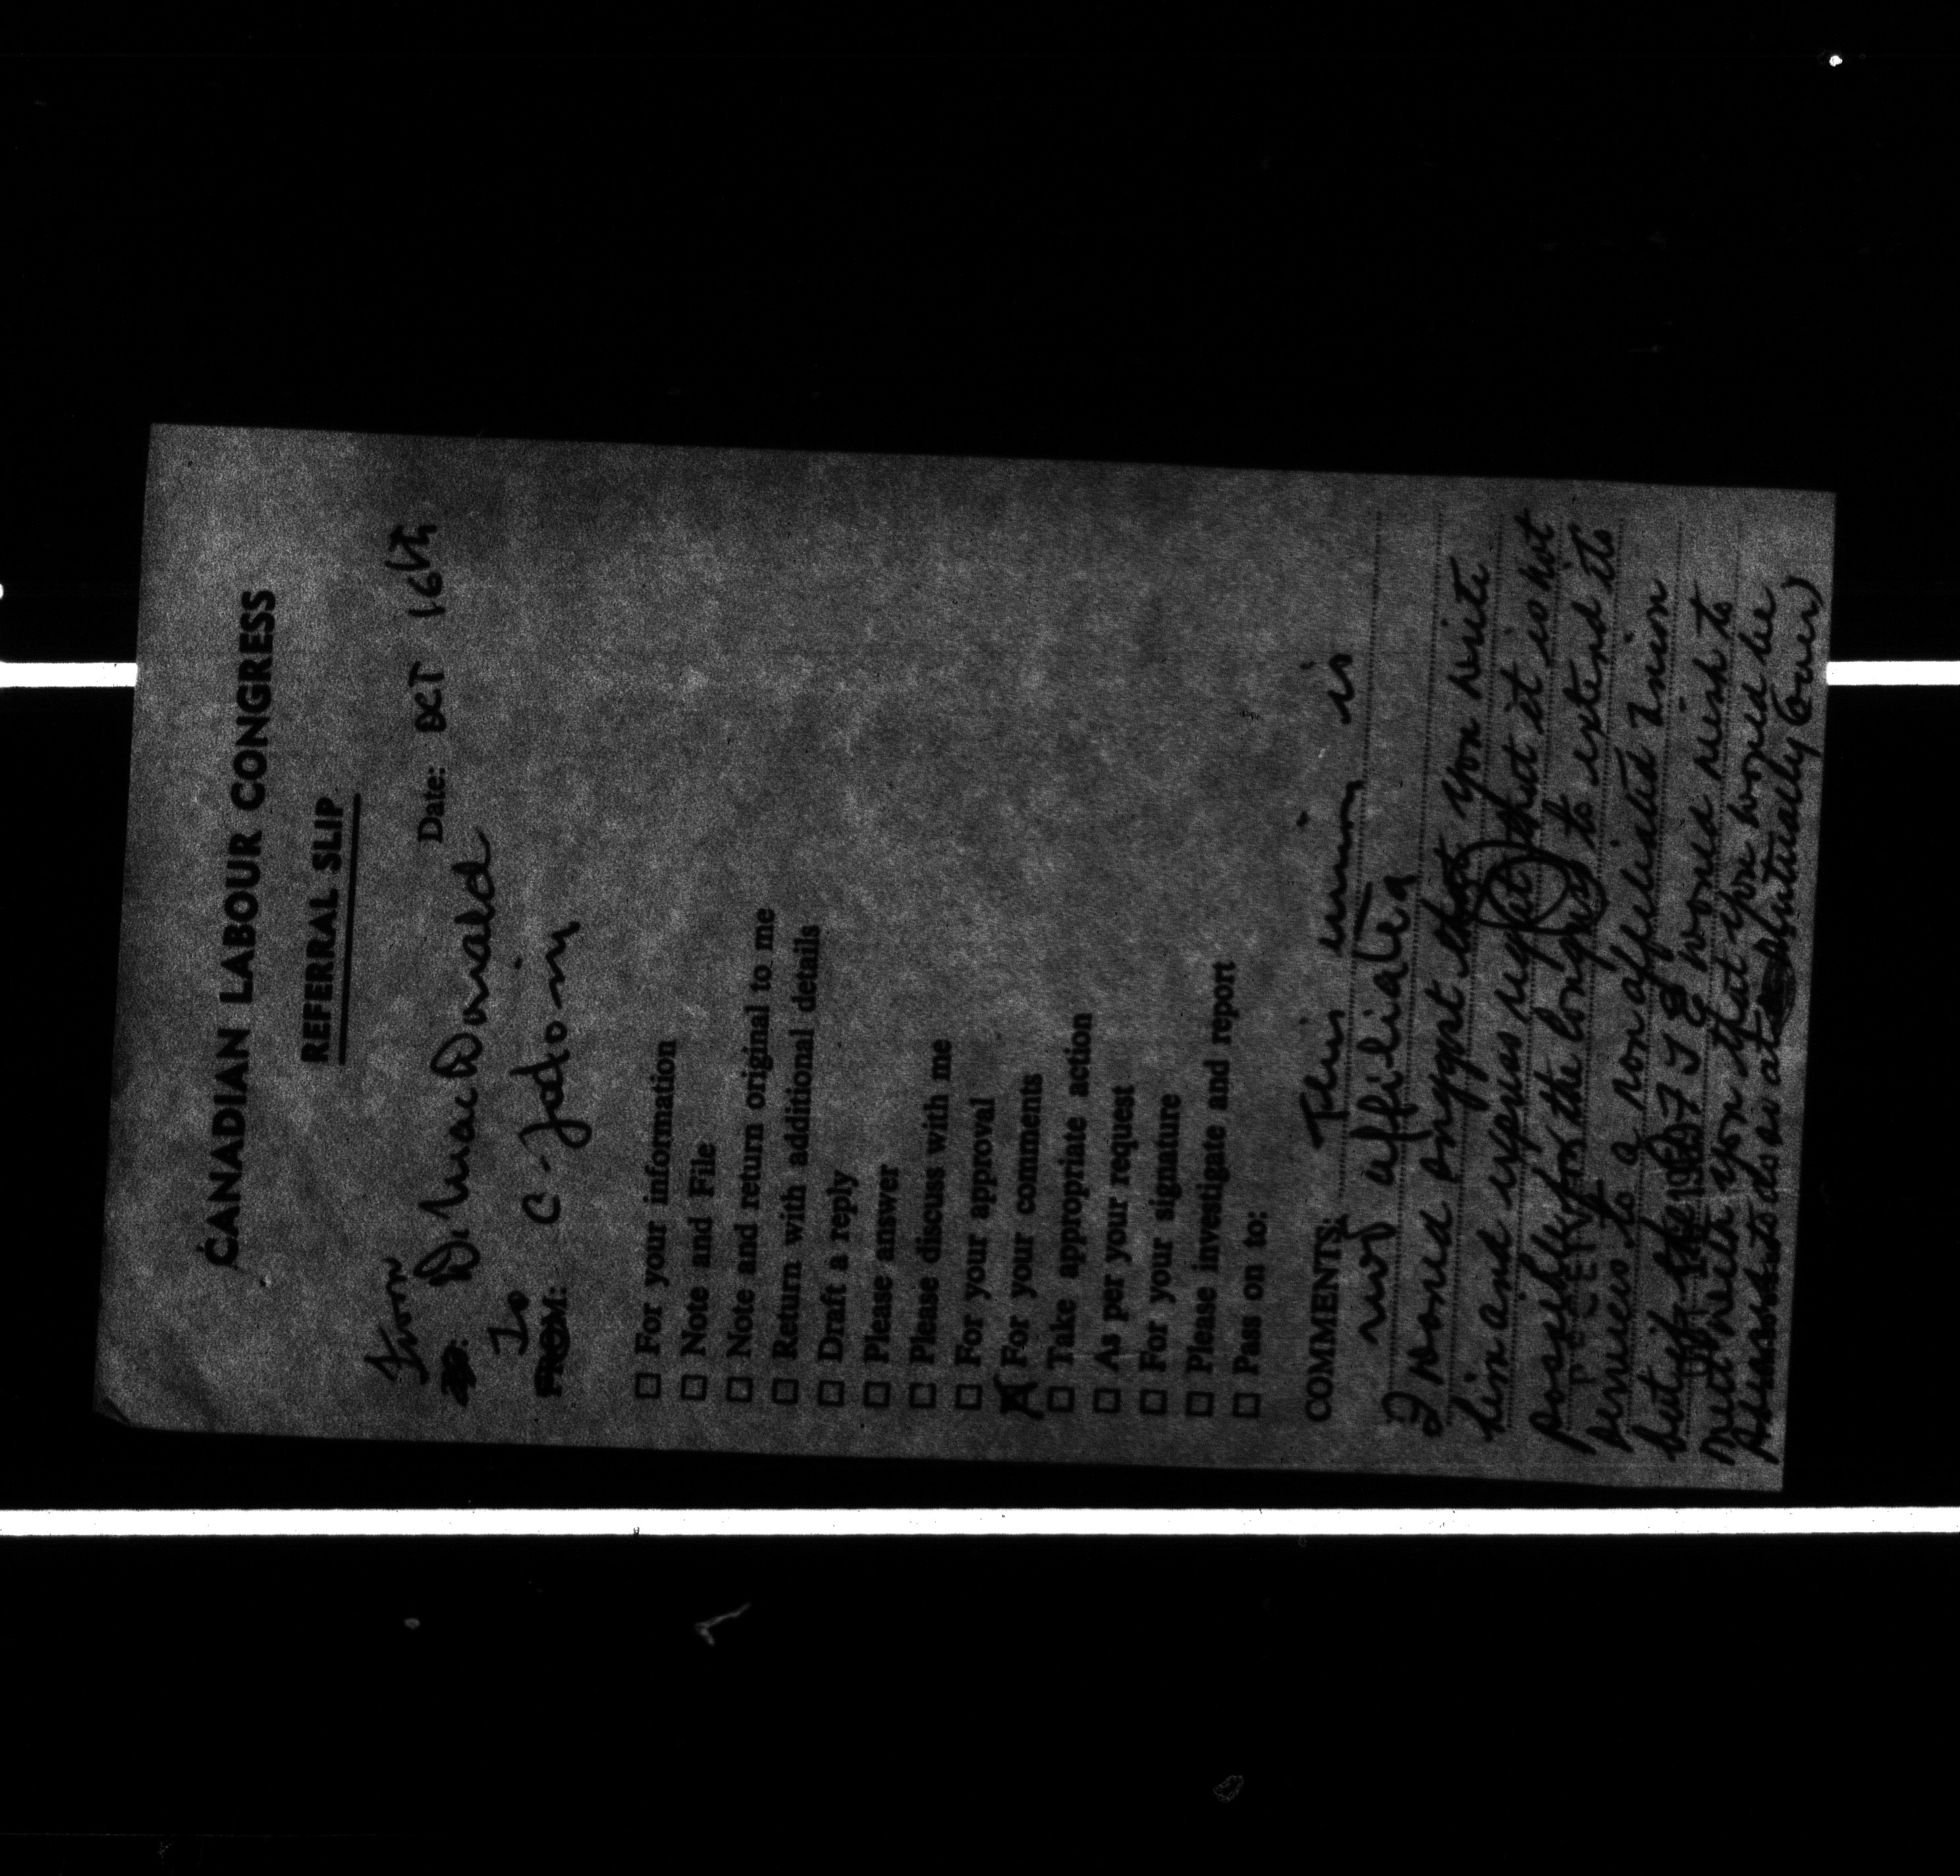 CANADIAN LABOUR CONGRESS
REFERRAL SLIP
From
D. MacDonald Date: OCT 16th
To
FROM: C. Jodoin
☐ For your information
☐ Note and File
☐ Note and return original to me
☐ Return with additional details
☐ Draft a reply
☐ Please answer
☐ Please discuss with me
☐ For your approval
☒ For your comments
☐ Take appropriate action
☐ As per your request
☐ For your signature
☐ Please investigate and report
☐ Pass on to:
COMMENTS: This union is
not affiliated
I would suggest that you write
him and express regret that it is not
possible for the Congress to extend its
services to a non affiliated union
but if the would wish to
meet with you that you would be
to do so at a mutually (over)